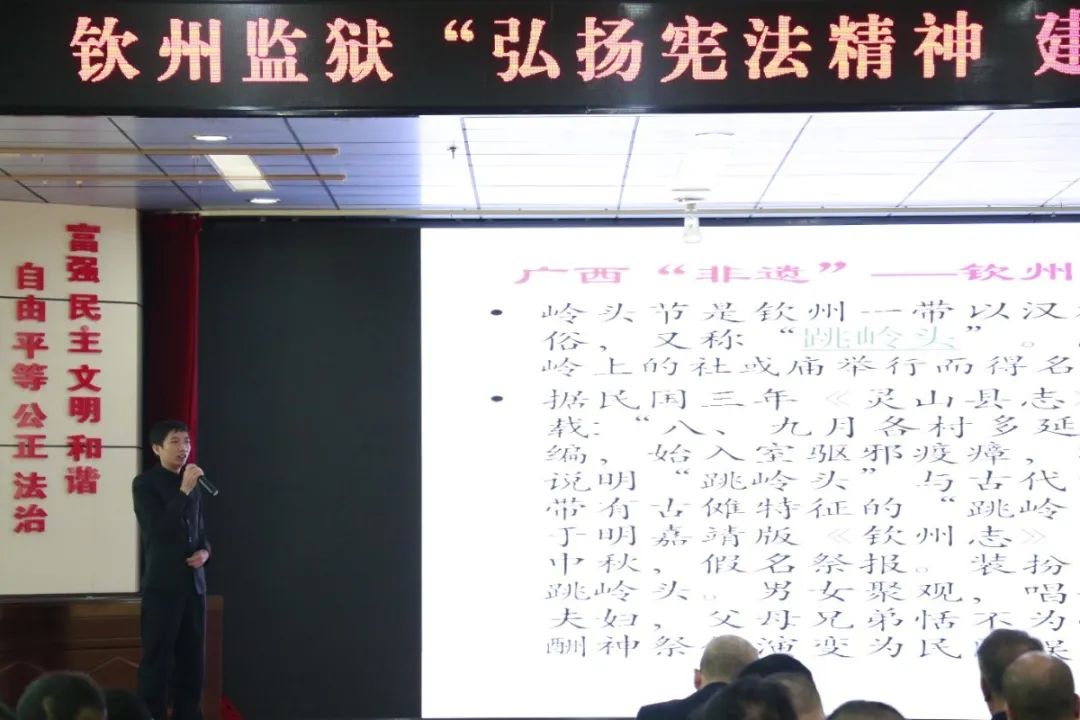 钦州监狱 “弘扬宪法精神 建
富强 民主 文明 和谐
自由 平等 公正 法治
广西“非遗”——钦州
• 岭头节是钦州一带以汉
俗，又称“跳岭头”。
岭上的社或庙举行而得名
• 据民国三年《灵山县志》
载：“八、九月各村多延
编，始入室驱邪疫瘴，
说明“跳岭头”与古代
带有古傩特征的“跳岭
于明嘉靖版《钦州志》
中秋，假名祭报。装扮
跳岭头。男女聚观，唱
夫妇，父母兄弟恬不为
酬神祭 演变为民